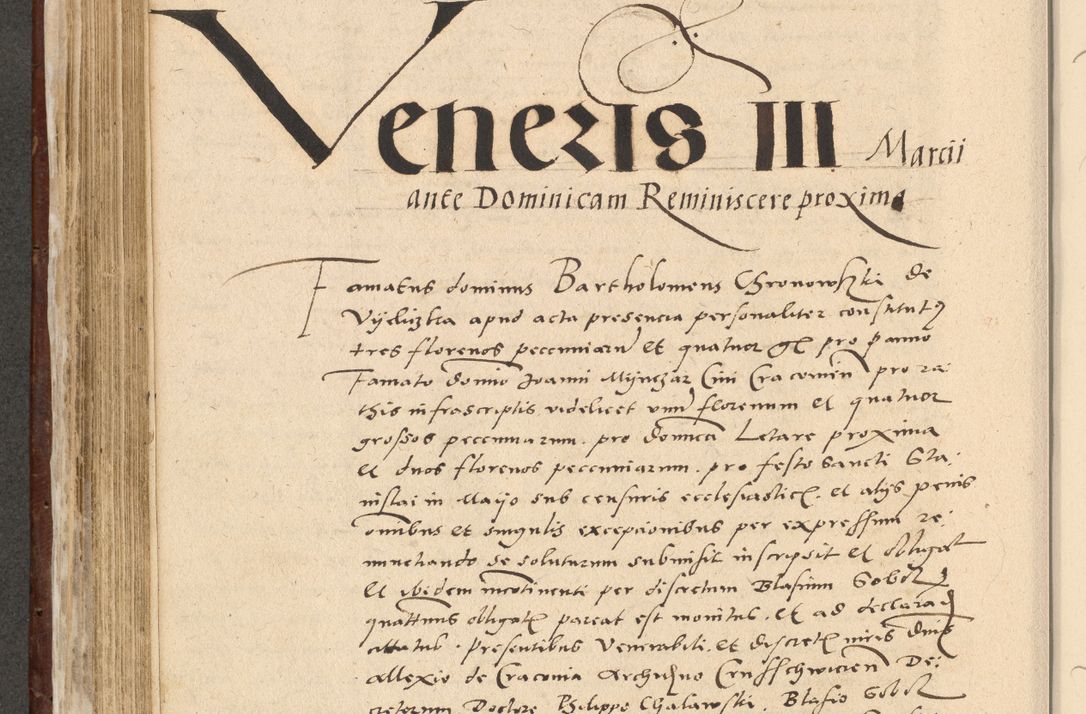 Veneris III Marcii
ante Dominicam Reminiscere proxima
Famatus dominus Bartholomeus Chronowszki de
Vyeliczka apud acta presencia personaliter constitut9
tres florenos pecuniaru et quatuor gr pro panno
Famato domino Joanni Mynczar Civi Cracovien pro ra-
this infrascriptis videlicet unu florenum et quatuor
grossos peccuniarum pro domica Letare proxima
et duos florenos peccuniarum pro festo Sancti Sta-
nislai in Maijo sub censuris ecclesiasticz et alijs penis
omibus et singulis excepcionibus per expressum re-
nunctiando se soluturum submisit inscripsit et obligat
et ibidem incotinenti per discretum Blasium Gobel
quattinus obligatz pareat est monitus et ad declarand
citatus Presentibus Venerabili et discretz viris dnis
Allexio de Cracovia Archidno Cruschwicien De-
cretorum Doctore Philippo Chalawski Blasio Gobel